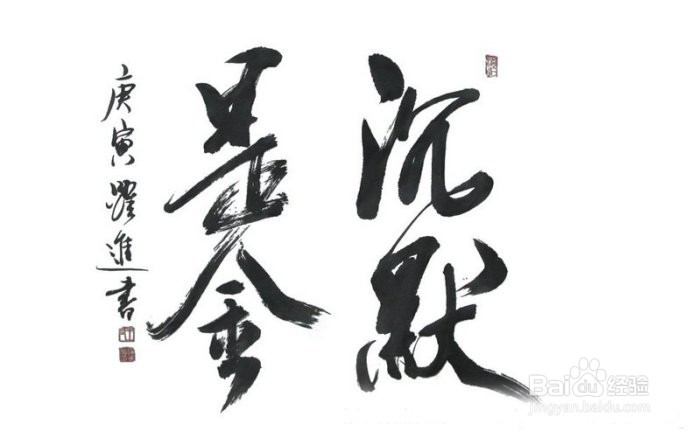 沉默
是金
庚寅躍進書
Bai度经验
jingyan.baidu.com